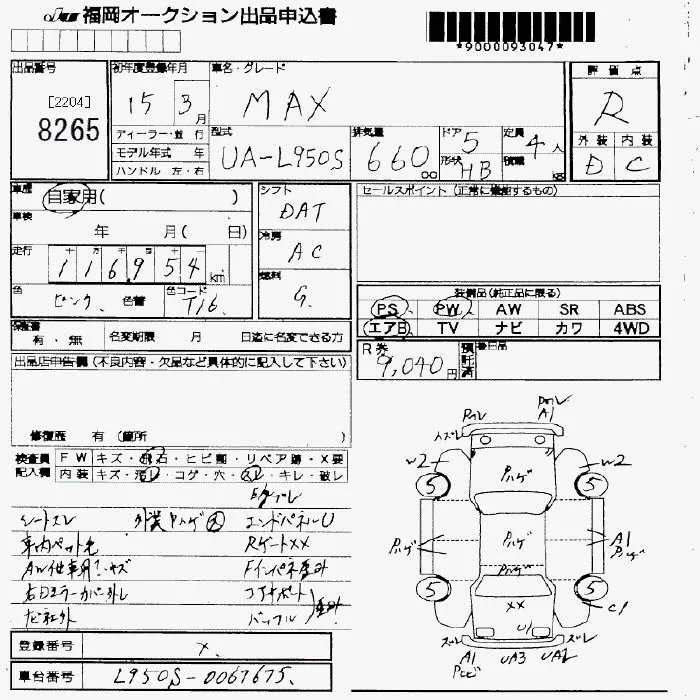 福岡オークション出品申込書
*9000093047*
出品番号
[2204]
8265
初年度登録年月
15 3月
車名・グレード
MAX
評価点
R
ディーラー・並行
モデル年式 年
ハンドル 左・右
型式
UA-L950S
排気量
660 CC
ドア 5
形状 HB
定員 4人
積載 KG
外装 内装
D C
車歴
自家用( )
車検
年 月( 日)
走行
十 万 千 百 十
116,954 km
色
ピンク 色替
色コード
T16
シフト
DAT
冷房
AC
燃料
G
セールスポイント (正常に機能するもの)
装備品(純正品に限る)
PS PW AW SR ABS
エアB TV ナビ カワ 4WD
保証書
有・無
名変期限 月 日迄に名変できる方
R券
9,040円
預託済
後日品
出品店申告欄(不良内容・欠品など具体的に記入して下さい)
修復歴 有 (箇所 )
検査員記入欄
FW キズ・飛石・ヒビ割・リペア跡・X要
内装 キズ・汚レ・コゲ・穴・スレ・キレ・破レ
シートスレ
外装Pハゲ大
エンドパネルU
RゲートXX
コアサポート
バッフル
登録番号
×
車台番号
L950S-0067675
A1
W2
W2
5
5
Pハゲ
Pハゲ
Pハゲ
Pハゲ
A1
5
5
XX
U1
C1
ズレ
ズレ
A1
UA3
UA2